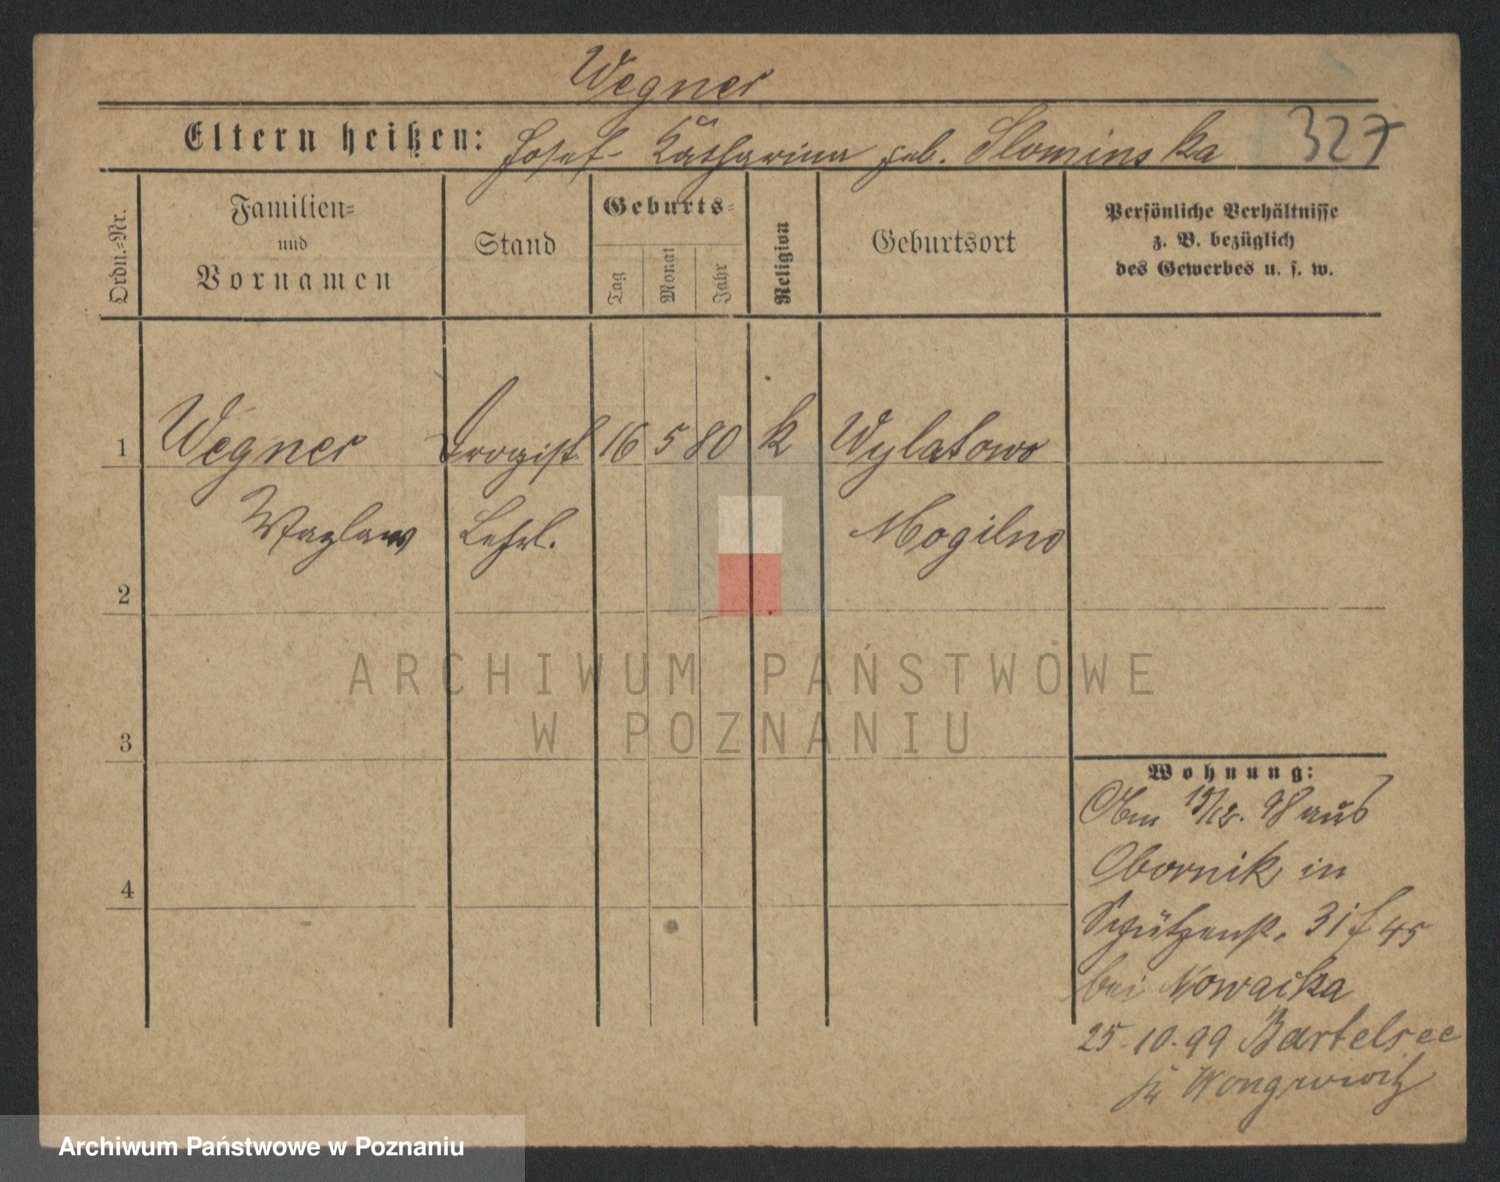 Wegner
Eltern heißen: Josef - Katharina geb. Slominska 327
Ordn.-Nr.
Familien=
und
Vornamen
Stand
Geburts=
Tag
Monat
Jahr
Religion
Geburtsort
Persönliche Verhältnisse
z. B. bezüglich
des Gewerbes u. s. w.
1 Wegner Drogist 16 5 80 k Wylatowo
Wazlaw Lehrl. Mogilno
2
3
4
Wohnung:
98 aus
Obornik in
Schützenst. 31 f 45
bei Nowacka
25-10-99 Bartelsee
ARCHIWUM PAŃSTWOWE
W POZNANIU
Archiwum Państwowe w Poznaniu